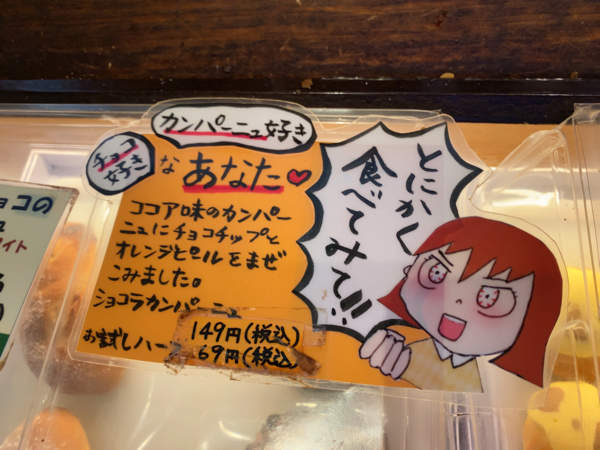 カンパーニュ好き
チョコ
好き
な あなた♥
ココア味のカンパー
ニュにチョコチップと
オレンジピールをまぜ
こみました。
ショコラカンパーニュ
149円(税込)
お試しハーフ 69円(税込)
とにかく
食べてみて!!
ョコの
ュ
イト